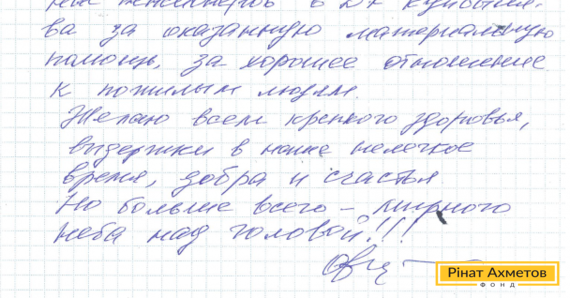 ва за оказанную материальную
помощь, за хорошее отношение
к пожилым людям.
Желаю всем крепкого здоровья,
выдержки в наше нелегкое
время, добра и счастья
Но больше всего – мирного
неба над головой!!!
Рінат Ахметов
ФОНД